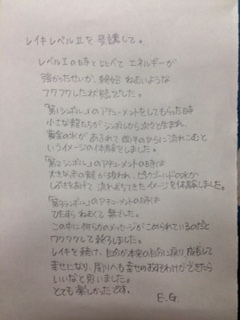 レイキレベルⅡを受講して。
レベルⅠの時とくらべて エネルギーが
強かったせいか、終始 ねむいような
フワフワした状態でした。
「第1シンボル」のアチューメントをしてもらった時
小さな龍たちが シンボルから次々と生まれ、
黄金の水が あふれて 体の中から流れこむと
いうイメージの体験でしました。
「第2シンボル」のアチューメントの時は
大きな赤の龍が現われ、ダイヤモンドの水が
しぶきをあげて 流れおちてきたイメージを体験しました。
「第3シンボル」のアチューメントの時は
ひたすら ねむくて 無でした。
この中に何らかのメッセージがこめられているのだと
ワクワクして終ろしました。
レイキを続け、自分が本来の自分に戻り、成長して
幸せになり、周りへも幸せのおすそわけができたら
いいなと思いました。
とても楽しかったです。
E.G.